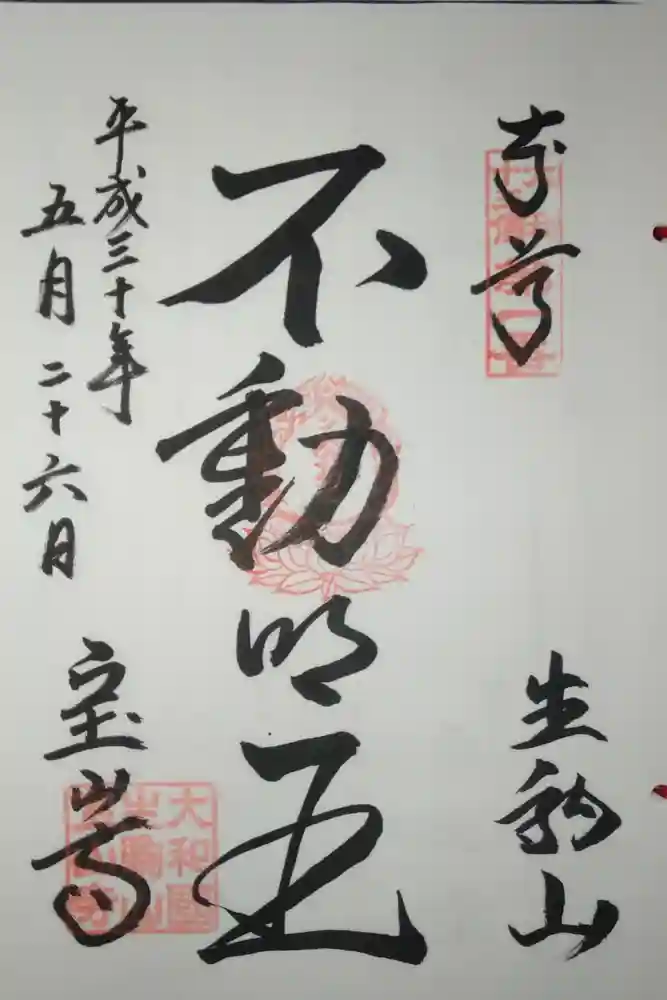 奉拝
生駒山
不動明王
平成三十年
五月二十六日
宝山寺
大和國
生駒山
寳山寺